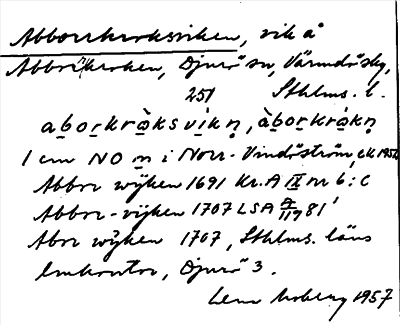 Abborrkroksviken, vik å
Abborrkroken, Djurö sn, Värmdö skg,
251 Sthlms. l.
aborkrò̱ksvìkn̥, àborkrókn̥
1 cm NO m i Norr-Vindöström, ek 1956
Abbor wijken 1691 Kr.A IX nr 6:C
Abbor-vijken 1707 LSA A 119 81
Abor wijken 1707, Sthlms. läns
lmkontor, Djurö 3.
1957